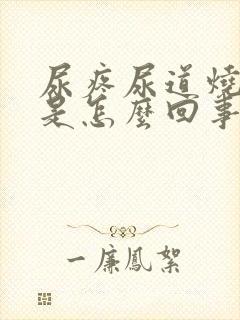 尿疼尿道燒
是怎麼回事
一廉鳳絮